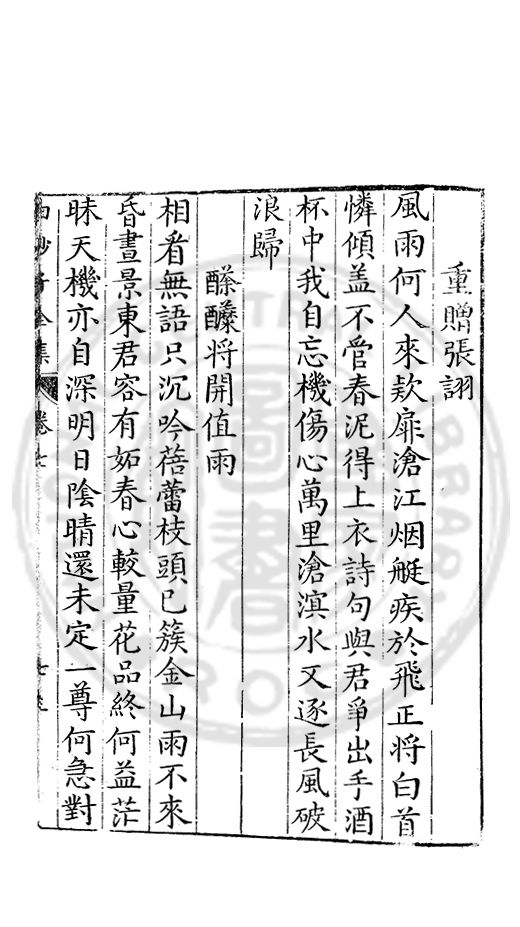 重贈張詡
風雨何人來欵扉滄江烟艇疾於飛正将白首
憐傾盖不管春泥得上衣詩句與君爭出手酒
杯中我自忘機傷心萬里滄溟水又逐長風破
浪歸
酴醾将開值雨
相看無語只沉吟蓓蕾枝頭已簇金山雨不來
昏晝景東君容有妬春心較量花品終何益茫
昧天機亦自深明日陰晴還未定一尊何急對
白沙子全集 卷七